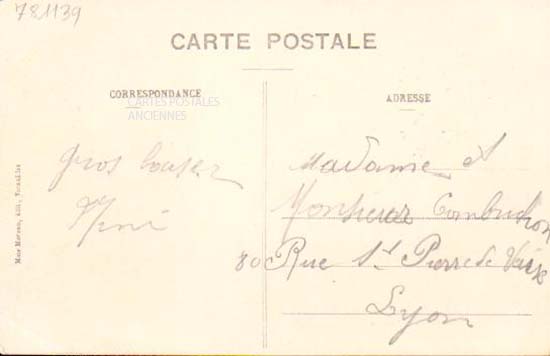 781139
CARTE POSTALE
CORRESPONDANCE
CARTES POSTALES
ANCIENNES
ADRESSE
Gros baiser
Madame et
Monsieur
80 Rue St Pierre de Vaise
Lyon